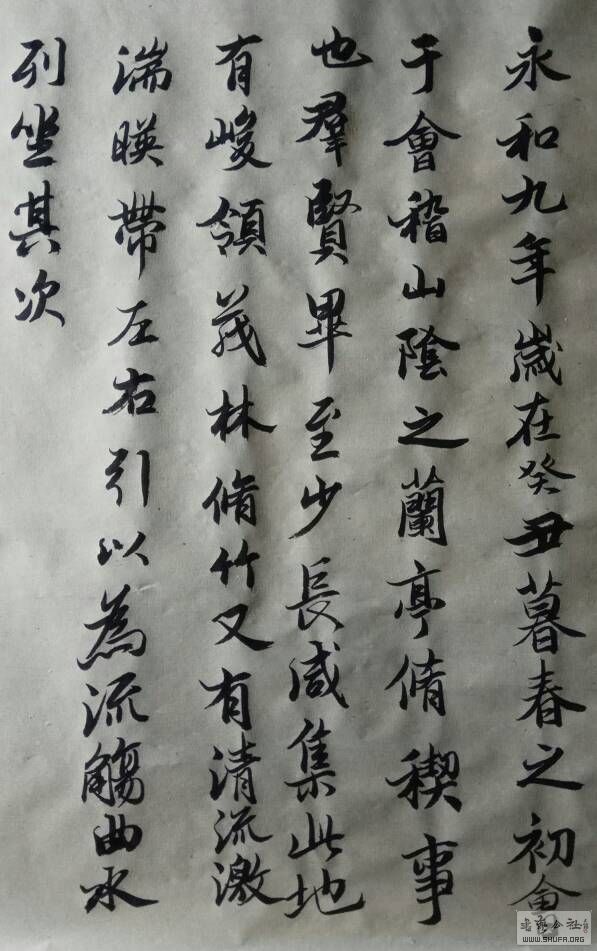 永和九年歲在癸丑暮春之初會
于會稽山陰之蘭亭脩稧事
也羣賢畢至少長咸集此地
有峻領茂林脩竹又有清流激
湍暎帶左右引以為流觴曲水
列坐其次
WWW.SHUFA.ORG